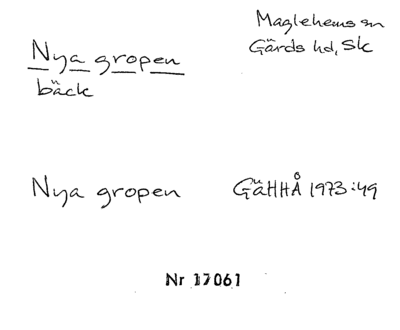 Maglehems sn
Gärds hd, Sk
Nya gropen
bäck
Nya gropen GäHHÅ 1973:49
Nr 17061